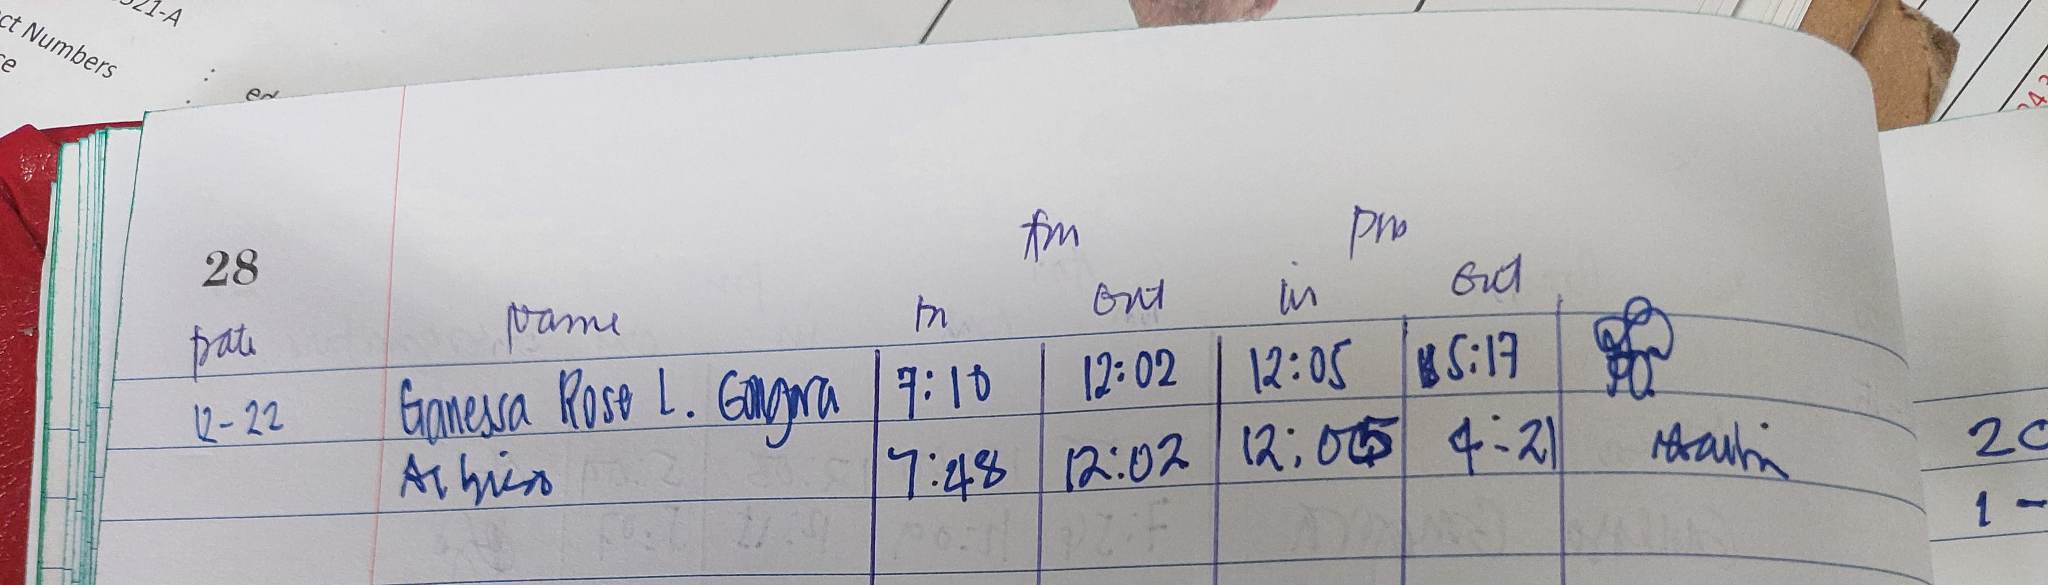 21-A
ct Numbers
e
:
Am Pm
28
Date Name In Out in Out
12-22 Ganessa Rose L. Gongora 7:10 12:02 12:05 5:17
7:48 12:02 12:05 4:21
20
1-